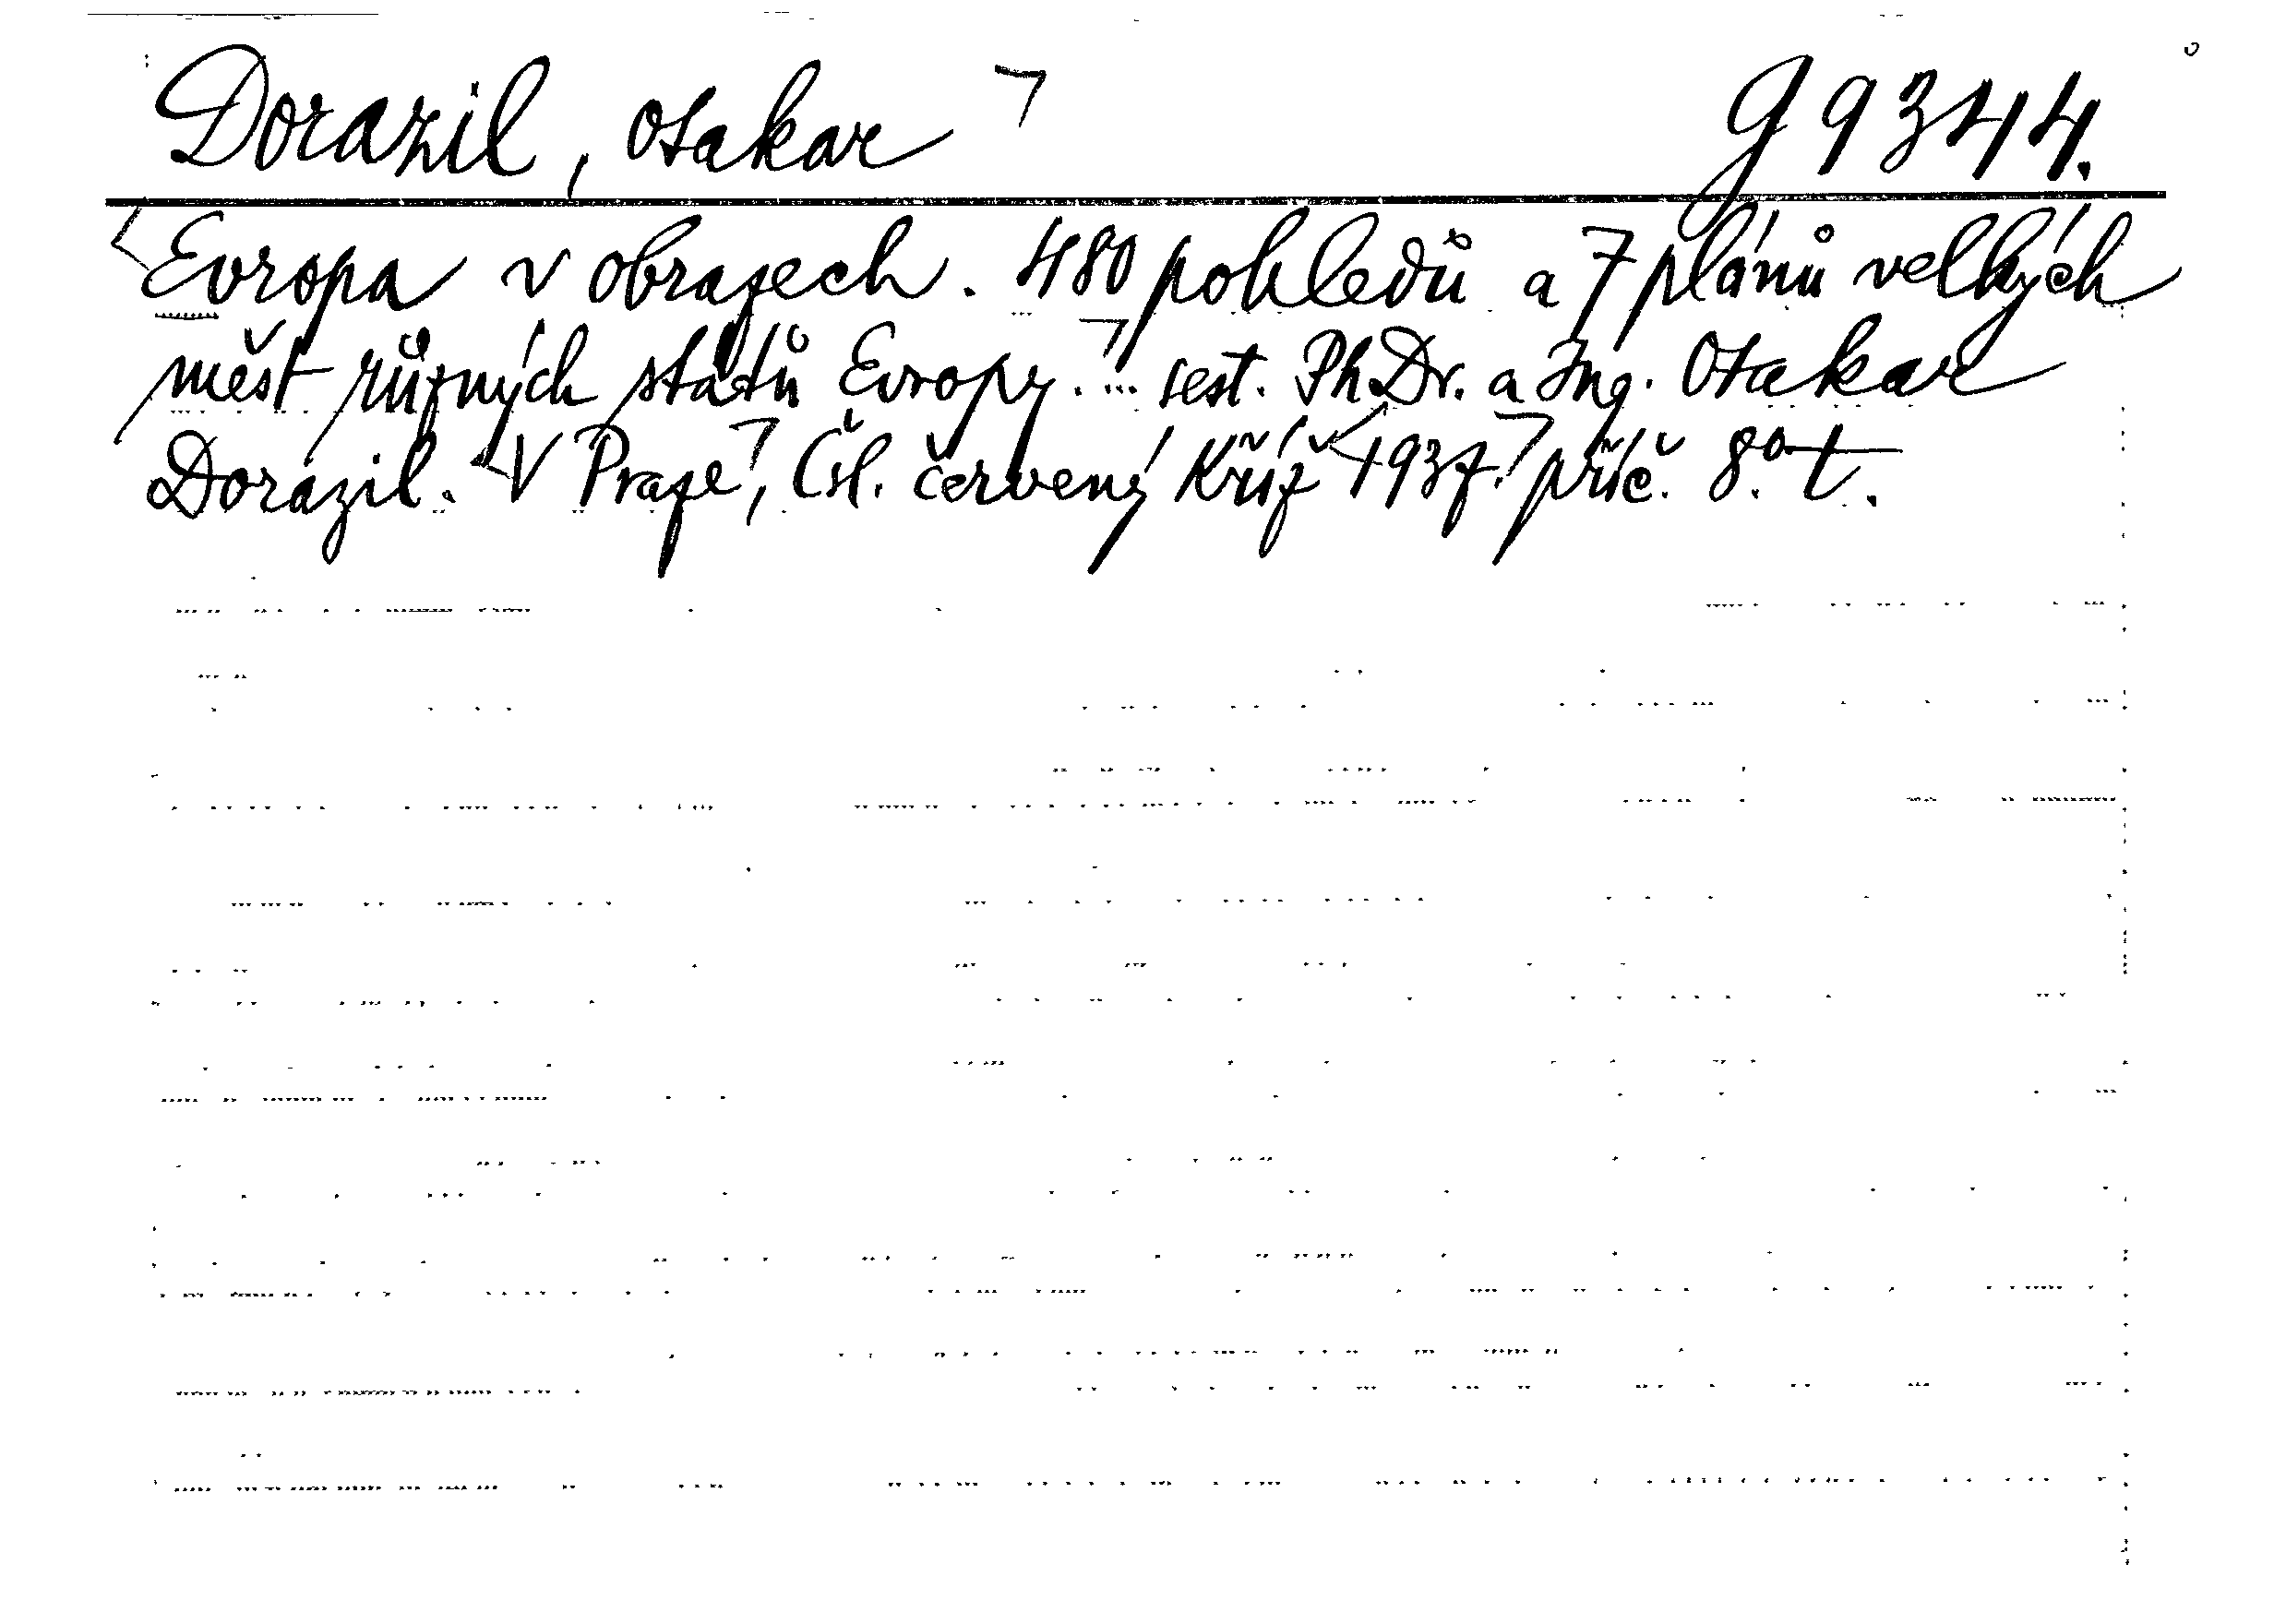 Dorazil, Otakar g 9344.
Evropa v obrazech. 480 pohledů a 7 plánů velkých
měst různých států Evropy. ... sest. PhDr. a Ing. Otakar
Dorazil. V Praze, Čsl. červený Kříž 1937. příč. 8°. t.